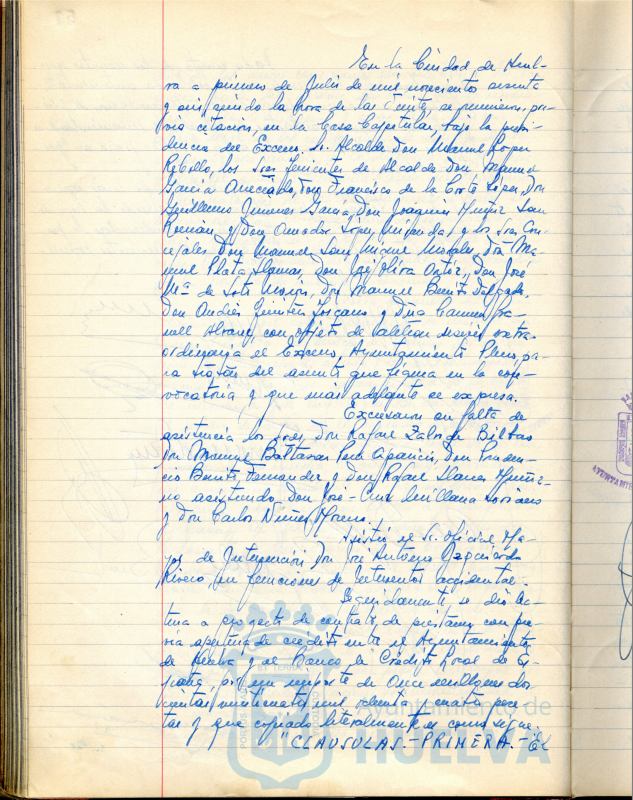 En la Ciudad de Huel-
va a primero de Julio de mil novecientos sesenta
y seis, siendo la hora de las veinte, se reunieron, pre-
via citación, en la Casa Capitular, bajo la presi-
dencia del Excmo. Sr. Alcalde Don Manuel López
Rebollo, los Sres Tenientes de Alcalde Don Manuel
García Don Francisco de la Corte López, Don
Guillermo Jimenez García, Don Joaquín Muñiz San
Román, y Don Amador López Miranda y los Sres Con-
cejales Don Manuel San Miguel Morales, Don Ma-
nuel Plata Don José Oliva Ortiz, Don José
Mª de Soto Don Manuel Benito Delgado,
Don Andrés Toscano y Dña Carmen
Alvarez, con objeto de celebrar sesión extra-
ordinaria el Excmo. Ayuntamiento Pleno, pa-
ra tratar del asunto que figura en la con-
vocatoria y que más adelante se expresa.
Excusaron su falta de
asistencia los Sres. Don Rafael de Bilbao
Don Manuel Baltasar Peña Aparicio, Don Pruden-
cio Benito Fernandez y Don Rafael Llanes Muñiz-
no asistiendo Don José-Cruz Soriano
y Don Carlos Nuñez Moreno.
Asistió el Sr. Oficial Ma-
yor de Intervención Don José Antonio
Rivero, en funciones de Interventor accidental.
Seguidamente se dió lec-
tura a proyecto de contrato de préstamo con pre-
via apertura de crédito entre el Ayuntamiento
de Huelva y el Banco de Crédito Local de Es-
paña, por un importe de Once millones dos
cientas mil ochenta y cuatro pese-
tas y que copiado literalmente es como sigue:
"CLAUSULAS.- PRIMERA.- El
Ayuntamiento de
HUELVA